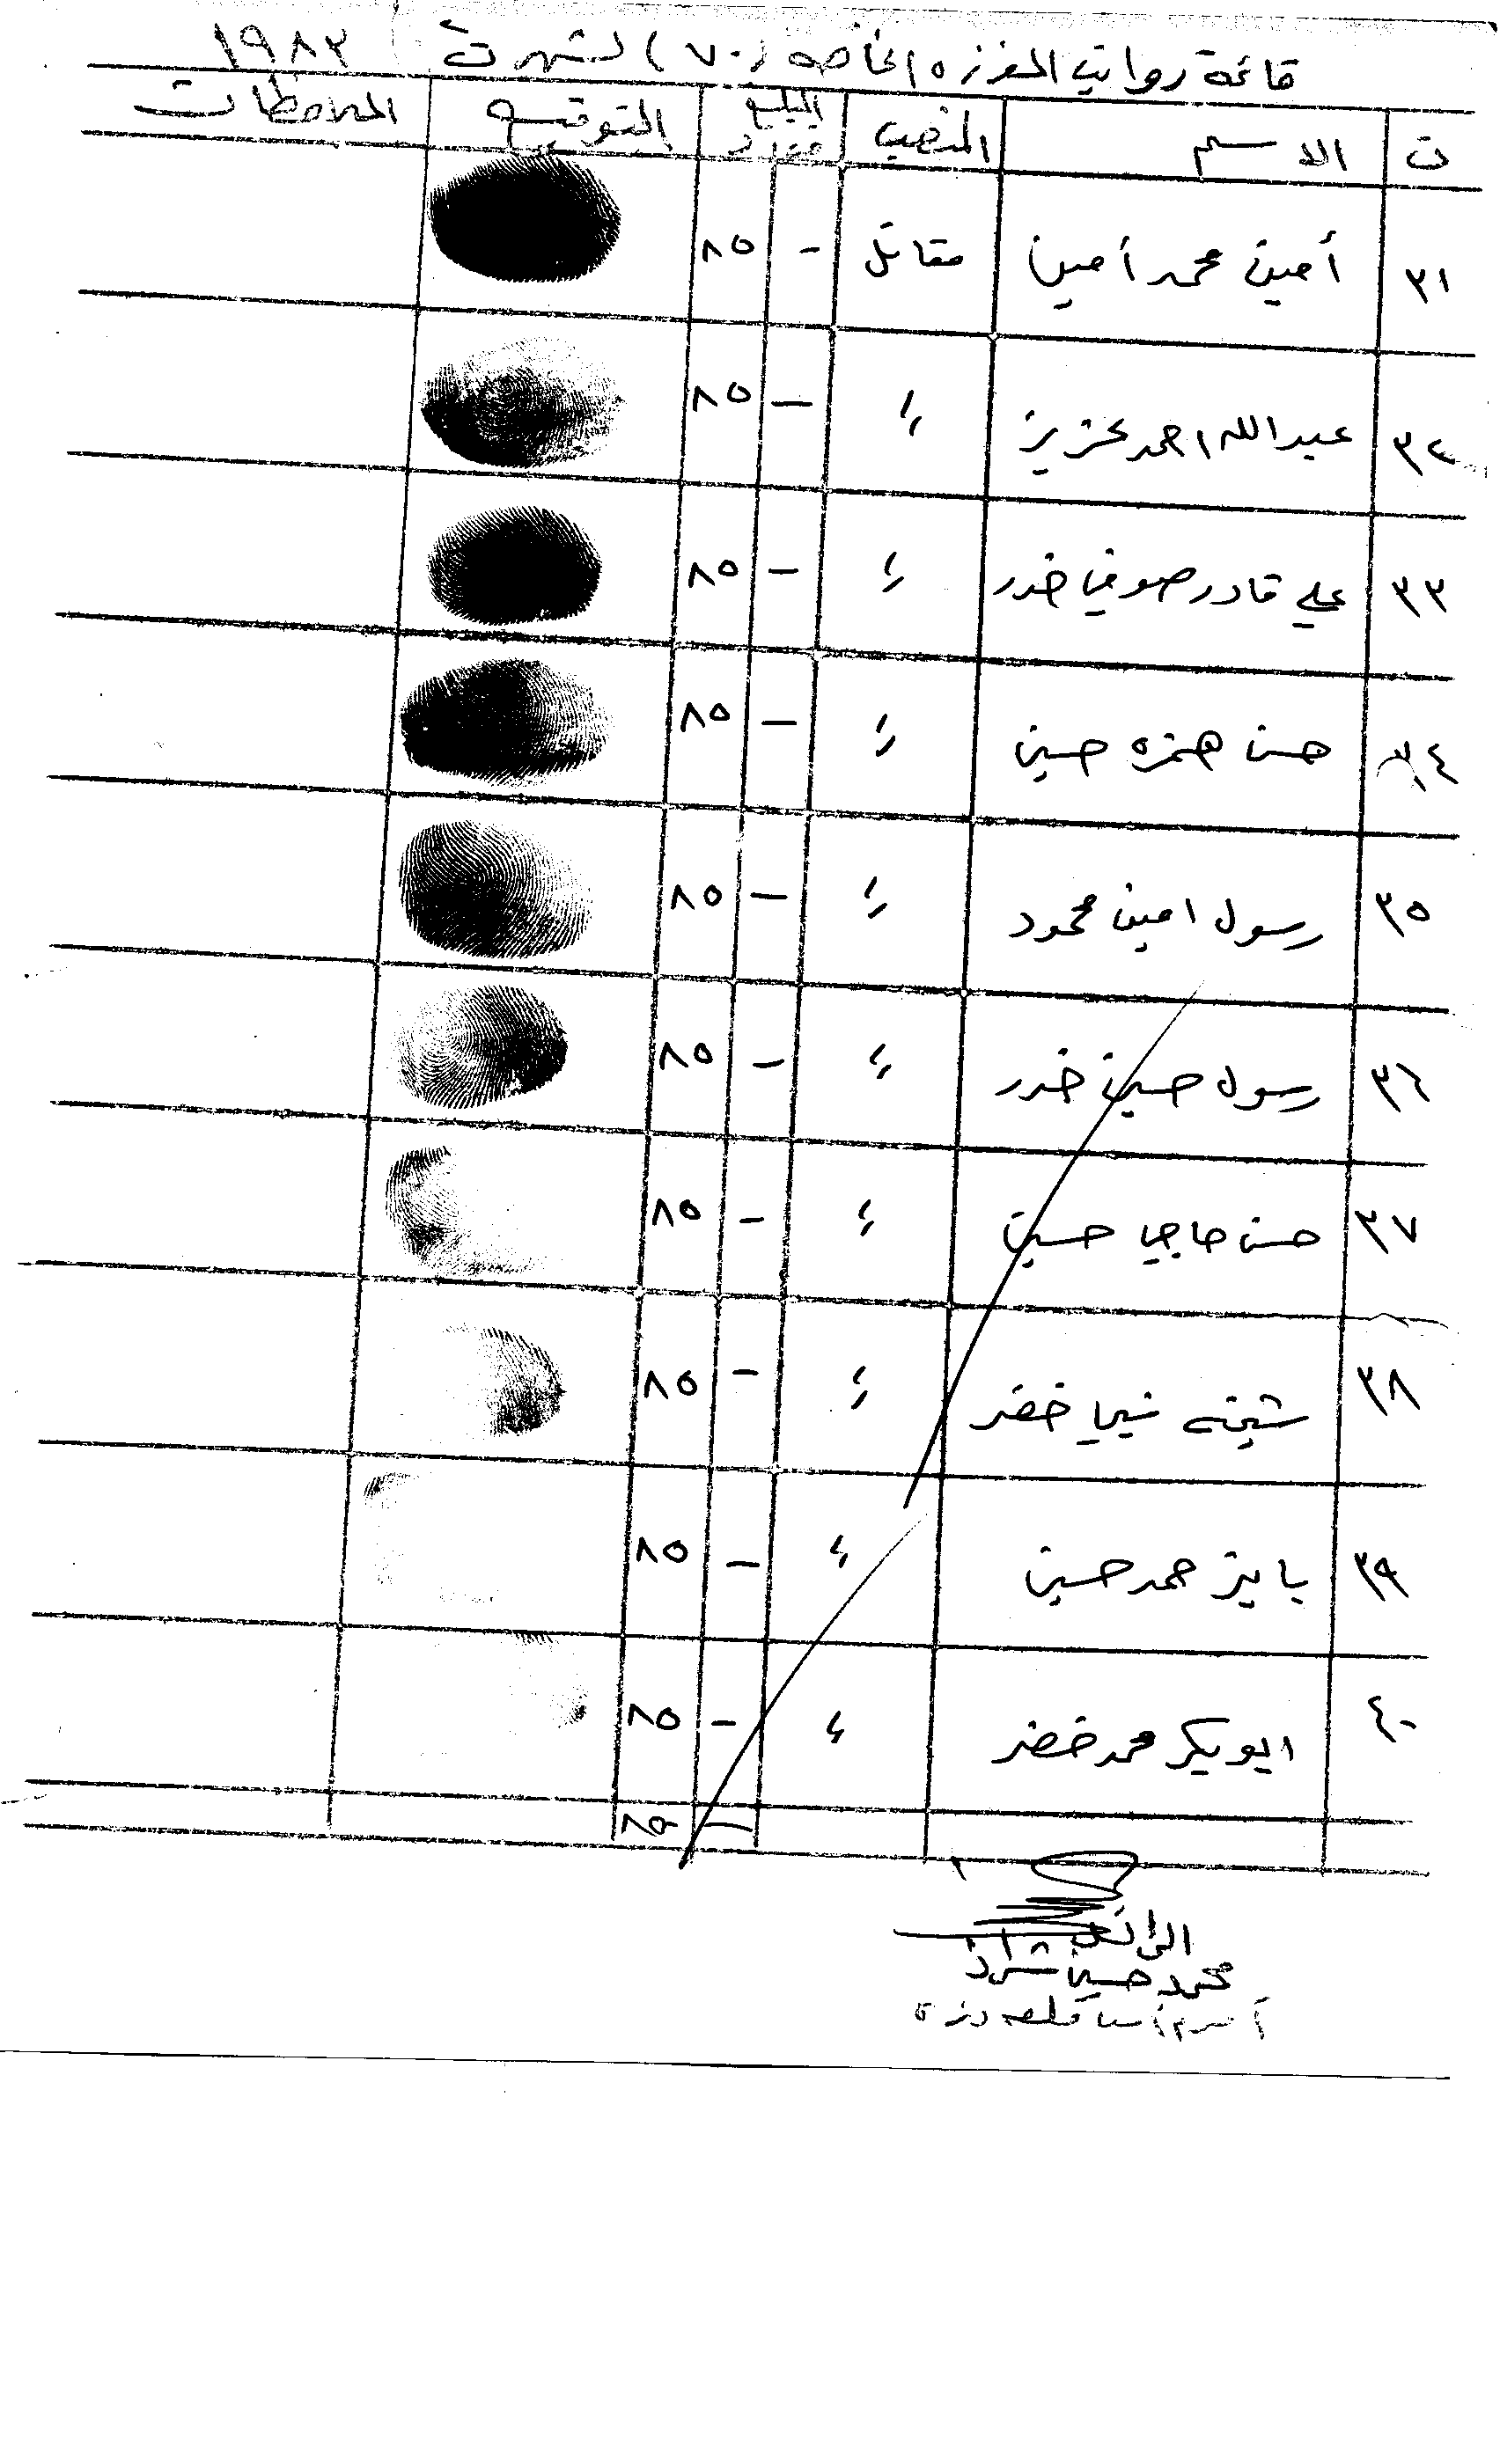 قائمة رواتب المفرزه الخاصه (٧٠) لشهر ت ١٩٨٣
ت الاسم المنصب المبلغ التوقيع الملاحظات
٣١ أمين محمد أمين مقاتل - ٨٥
٣٢ عبدالله احمد عزيز // - ٨٥
٣٣ علي قادر صوفي خدر // - ٨٥
٣٤ حسن همزه حسين // - ٨٥
٣٥ رسول امين محمود // - ٨٥
٣٦ رسول حسين خدر // - ٨٥
٣٧ حسن حاجي حسين // - ٨٥
٣٨ خضر // - ٨٥
٣٩ بايز حمد حسين // - ٨٥
٤٠ ابوبكر محمد خضر // - ٨٥
الرائد
محمد حسين